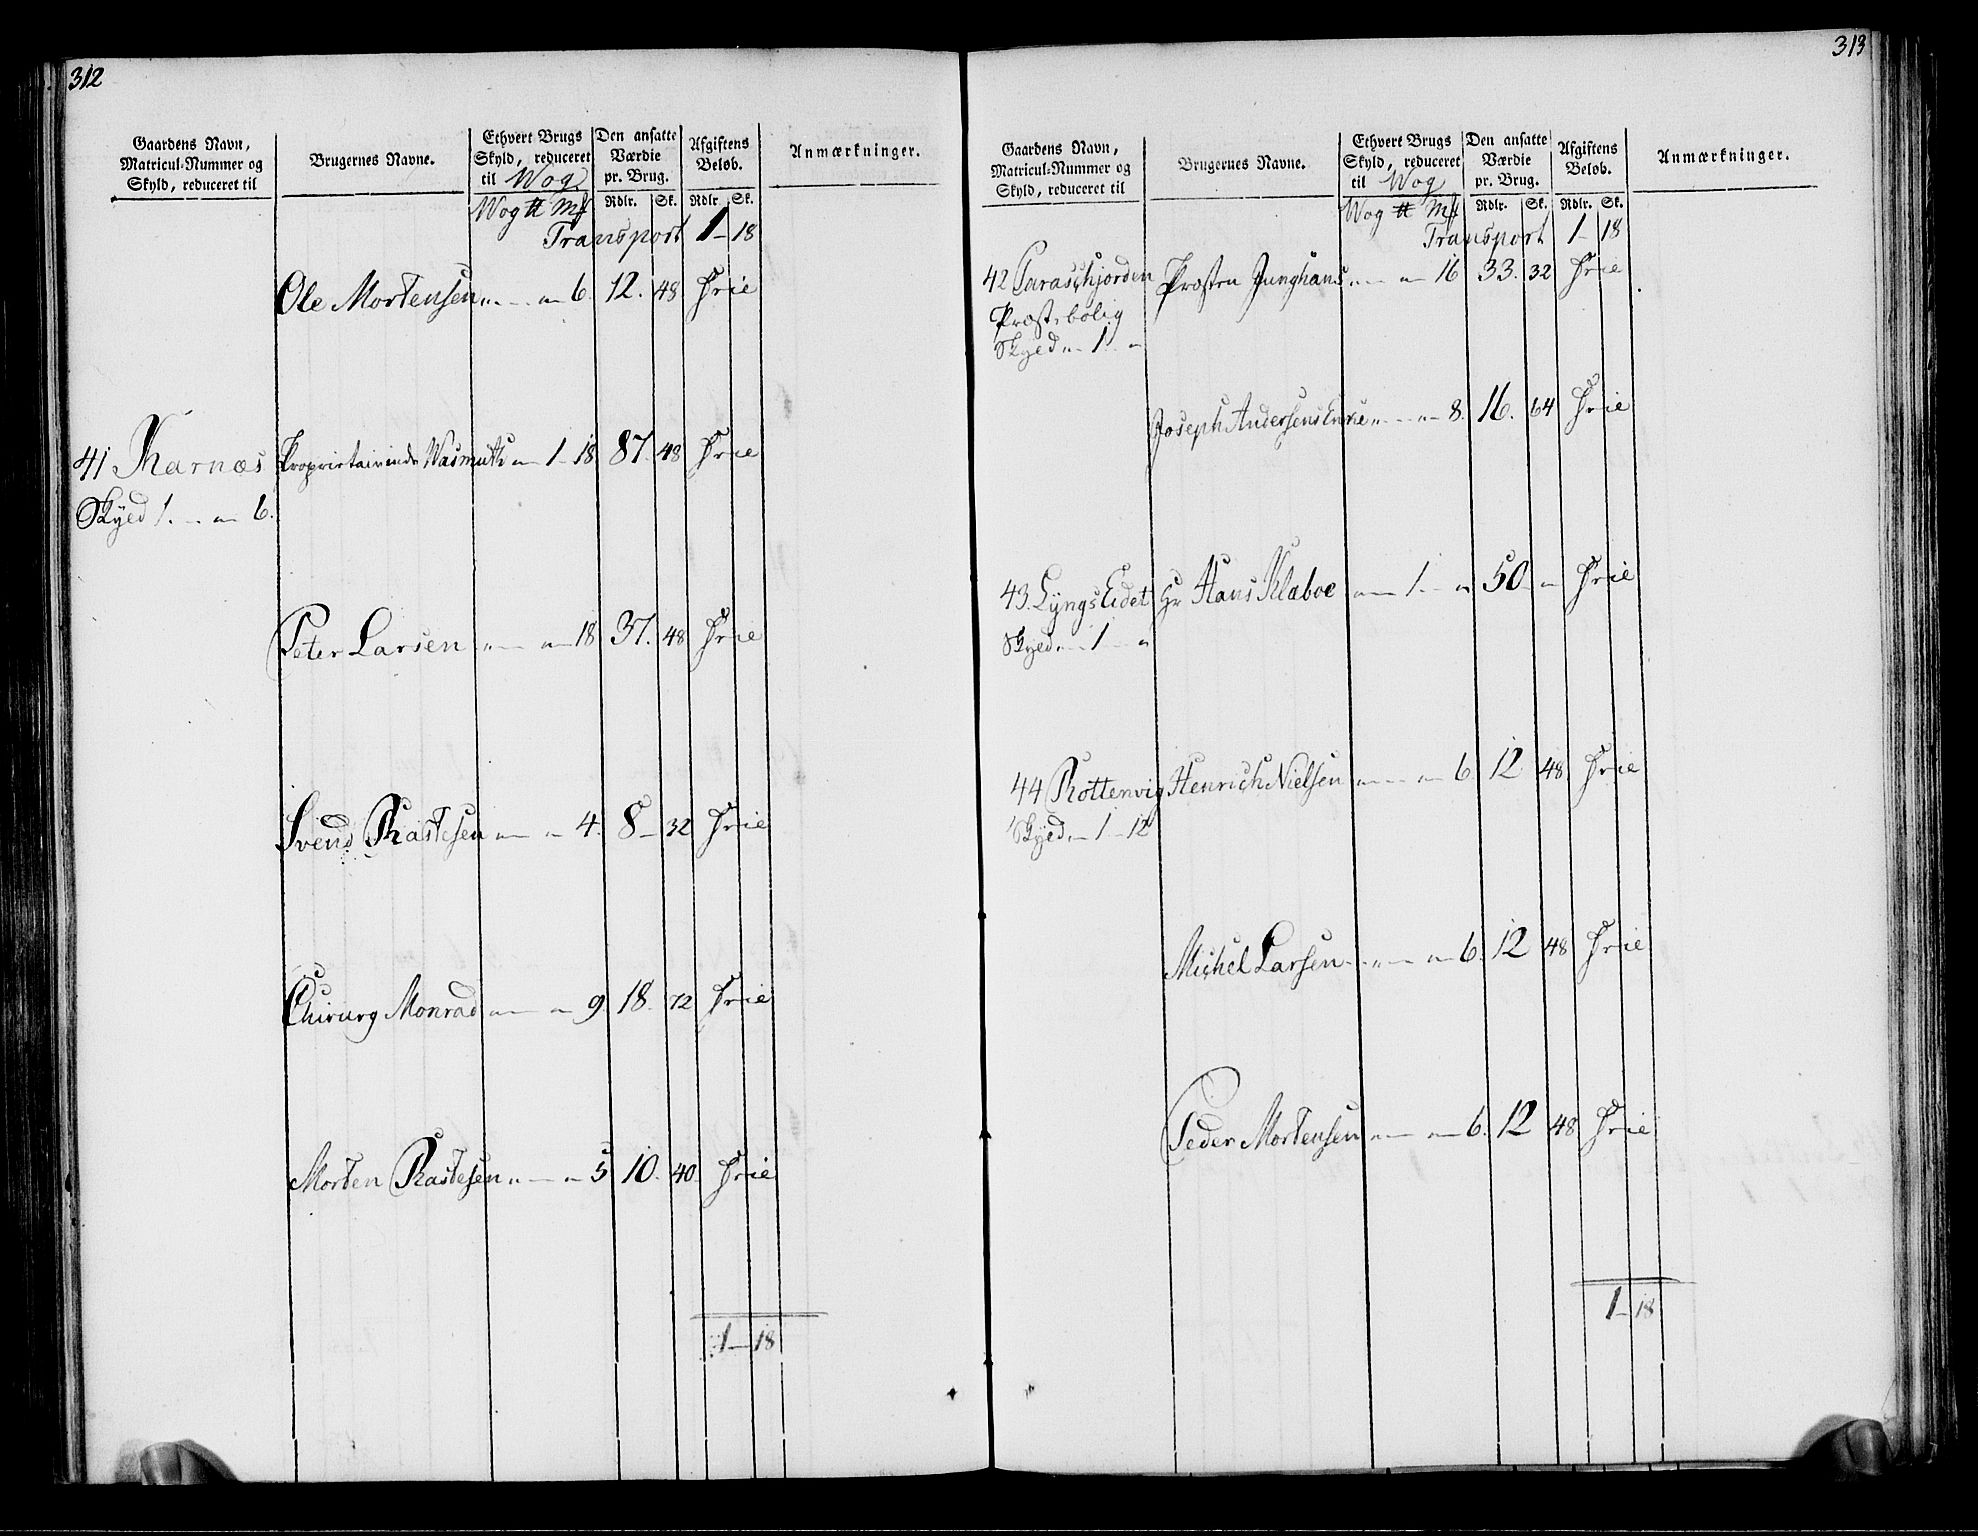 312
Gaardens Navn, Matricul-Nummer og Skyld, reduceret til
Brugernes Navne.
Ethvert Brugs Skyld, reduceret til Wog
Den ansatte Værdie pr. Brug.
Afgiftens Beløb.
Anmærkninger.
Wog ℔ Mk Rdlr. Sk. Rdlr. Sk.
Transport 1 — 18
Ole Mortensen „ — „ 6. 12. 48 Frie
41 Karnæs Proprietairinde Wasmuth „ 1 — 18 87. 48 Frie
Skyed 1. — „ — 6.
Peter Larsen „ — „ — 18 37. 48 Frie
Svend Rastesen „ — „ 4. 8 — 32 Frie
Chirurg Monrad „ — „ 9. 18. 72 Frie
Morten Rastesen „ — „ 5 10. 40. Frie
1 — 18
313
Gaardens Navn, Matricul-Nummer og Skyld, reduceret til
Brugernes Navne.
Ethvert Brugs Skyld, reduceret til Wog
Den ansatte Værdie pr. Brug.
Afgiftens Beløb.
Anmærkninger.
Wog ℔ Mk Rdlr. Sk. Rdlr. Sk.
Transport 1 — 18
42 Parasehjorden Prosten Junghans „ — „ — 16 33. 32 Frie
Præstebolig
Skyed „ — 1. — „
Joseph Andersens Enke „ — „ — 8. 16. 64 Frie
43. Lyngs Eidet Hr Hans Klæboe „ — 1. — „ 50 — „ Frie
Skyed „ — 1 — „
44 Rottenvig Henrich Nielsen „ — „ 6 12. 48 Frie
Skyed „ — 1 — 12
Michel Larsen „ — „ — 6. 12 48 Frie
Peder Mortensen „ — „ 6. 12 48 Frie
1 — 18